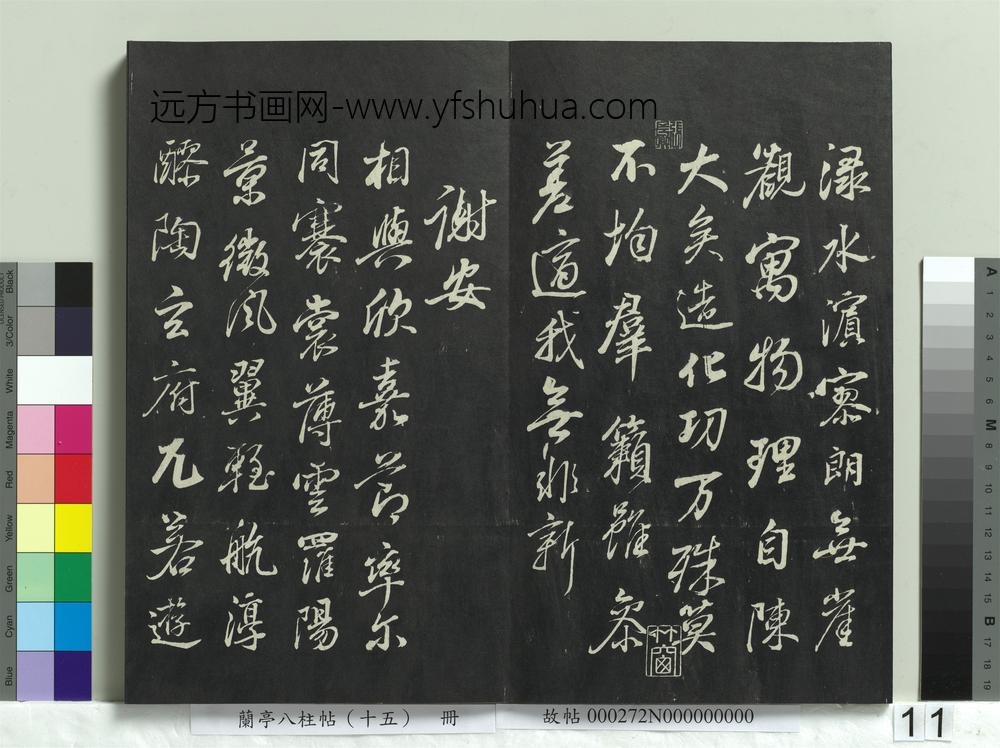 远方书画网-www.yfshuhua.com
淥水濵寥朗無崖
觀寓物理自陳
大矣造化功万殊莫
不均羣籟雖叅
差適我無非新
謝安
相與欣嘉節率尔
同褰裳薄雲羅陽
景微風翼輕航淳
醪陶玄府兀若遊
蘭亭八柱帖（十五） 冊
故帖 000272N000000000
11
Black
3/Color
White
Magenta
Red
Yellow
Green
Cyan
Blue
A
1
2
3
4
5
6
M
8
9
10
11
12
13
14
15
B
17
18
19